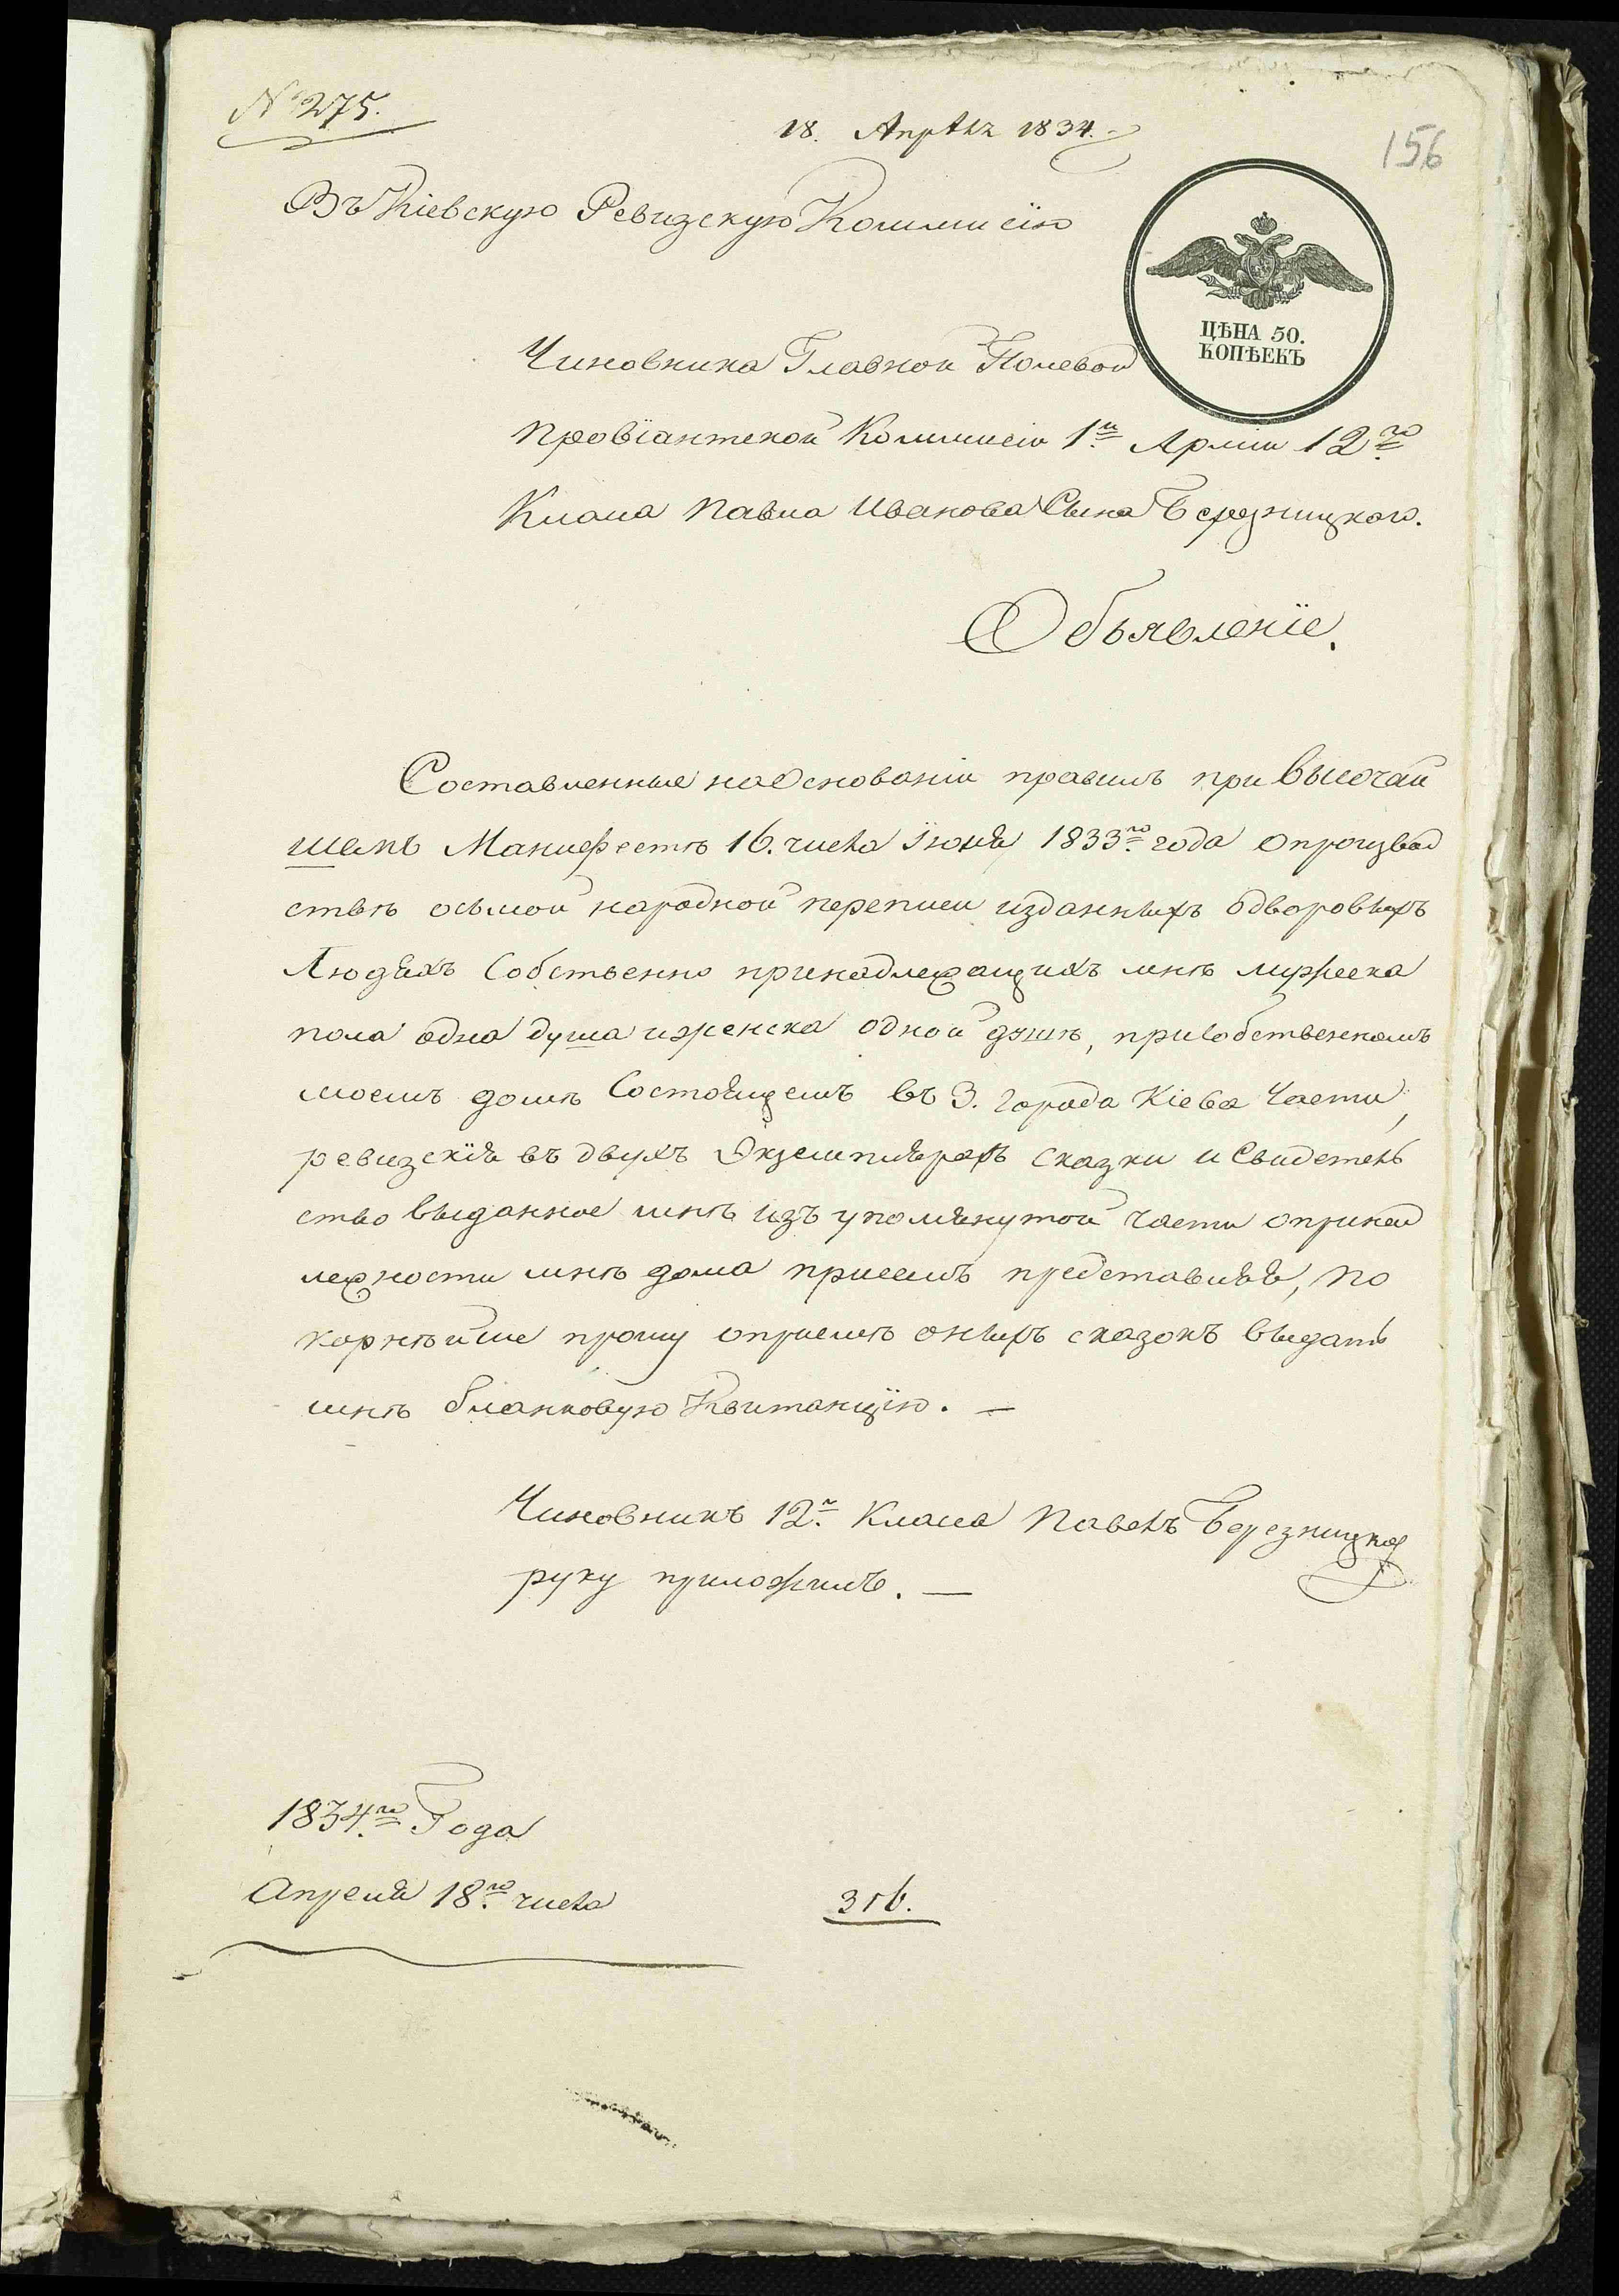 № 275.
18. Апрѣля 1834.
156
Въ Кіевскую Ревизскую Коммисію
ЦѢНА 50.
КОПѢЕКЪ
Чиновника Главной Полевой
Провіантской Коммисіи 1й Арміи 12го
Класа Павла Иванова Сына Березницкого.
Объявленіе.
Составленные на Основаніи правилъ при Высочай
шемъ Манифестѣ 16. числа Іюня 1833го года о производ
ствѣ осьмой народной переписи изданныхъ о дворовыхъ
Людяхъ Собственно принадлежащихъ мнѣ мужеска
пола одна душа и женска одной душѣ, при собственномъ
моемъ домѣ Состоящемъ въ 3. города Кіева Части,
ревизскія въ двухъ Экземплярахъ сказки и Свидетель
ство выданное мнѣ изъ упомянутой части о принад
лежности мнѣ дома присемъ представляя, по
корнѣйше прошу о приемѣ оныхъ сказокъ выдать
мнѣ бланковую Квитанцію. —
Чиновникъ 12го Класа Павелъ Березницкій
руку приложилъ. —
1834го Года
Апреля 18го числа
316.